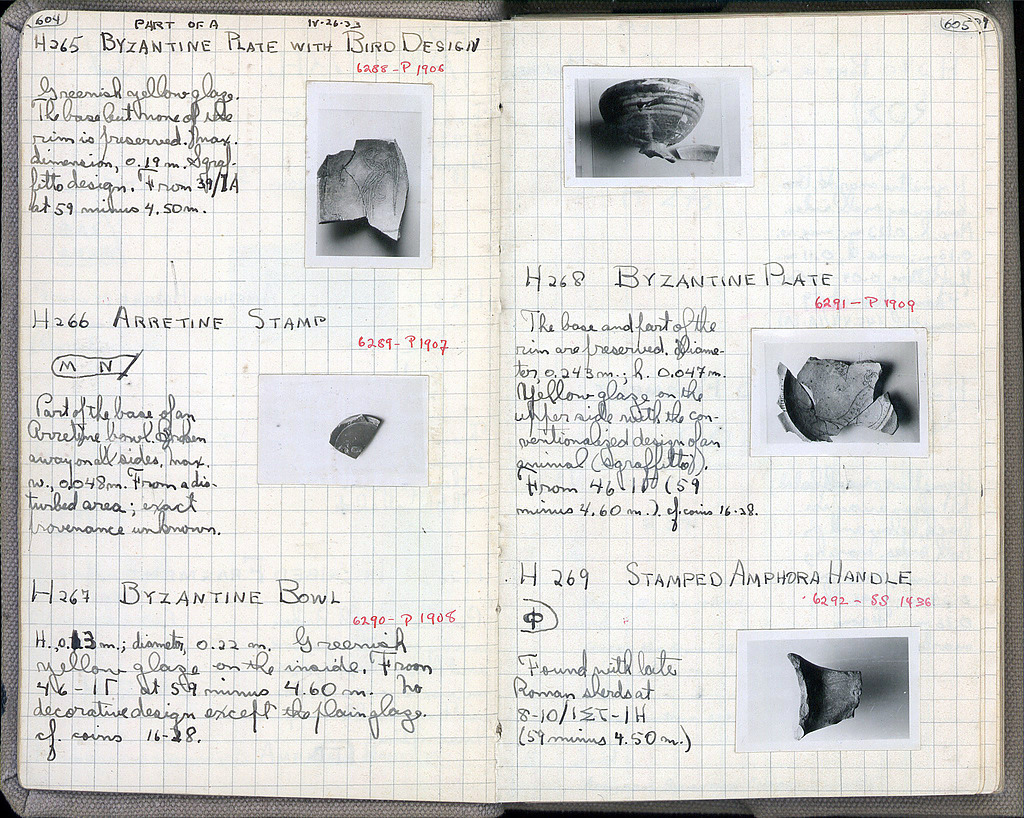 604
PART OF A
IV-26-33
H265 BYZANTINE PLATE WITH BIRD DESIGN
6288-P 1906
Greenish yellow glaze.
The base but none of the
rim is preserved. Max.
dimension, 0.19 m. Sgraf-
fitto design. From 39/ΙΑ
at 59 minus 4.50 m.
H266 ARRETINE STAMP
6289-P 1907
M N
Part of the base of an
Arretine bowl. Broken
away on all sides. Max.
w., 0.048 m. From a dis-
turbed area; exact
provenance unknown.
H267 BYZANTINE BOWL
6290-P 1908
H., 0.13 m.; diameter, 0.22 m. Greenish
yellow glaze on the inside. From
46-ΙΓ at 59 minus 4.60 m. No
decorative design except the plain glaze.
cf. coins 16-28.
605
H268 BYZANTINE PLATE
6291-P 1909
The base and part of the
rim are preserved. Diame-
ter, 0.243 m.; h. 0.047 m.
Yellow glaze on the
upper side with the con-
ventionalized design of an
animal (Sgraffitto).
From 46- (59
minus 4.60 m.). cf. coins 16-28.
H 269 STAMPED AMPHORA HANDLE
6292-SS 1436
Φ
Found with late
Roman sherds at
8-10/ΙΣΤ-ΙΗ
(59 minus 4.50 m.)